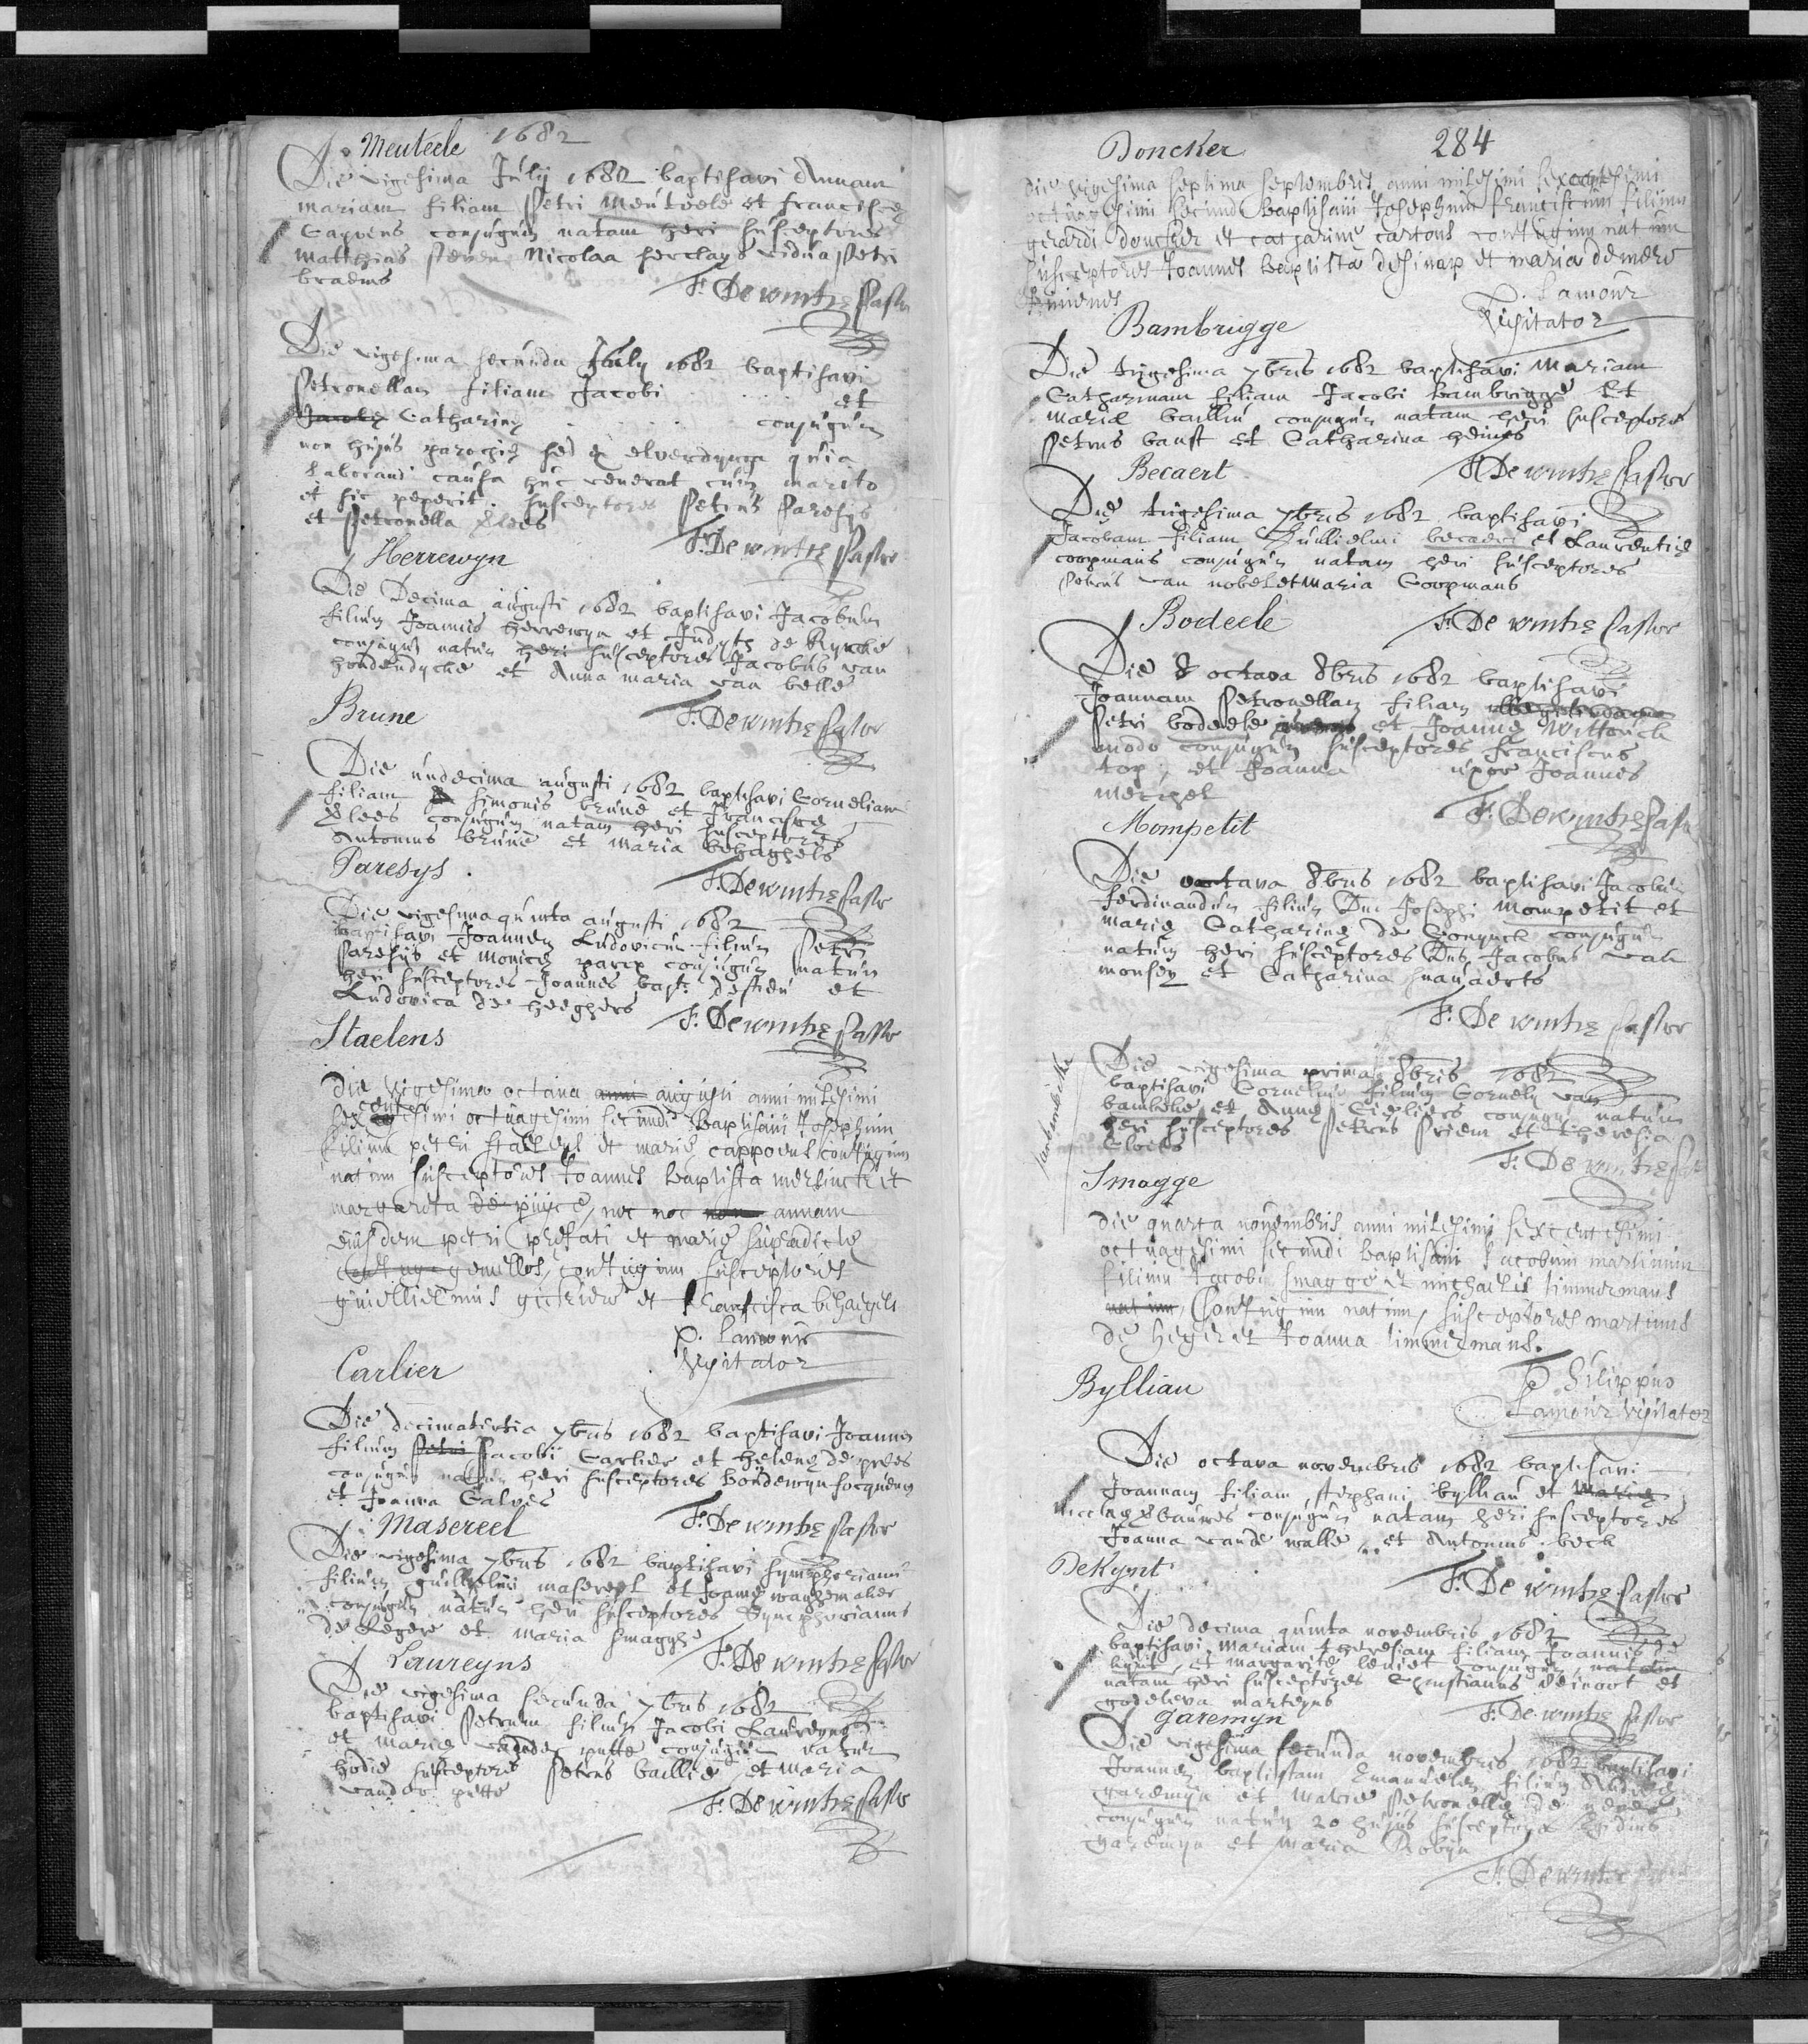 Meuteele 1682
Die vigesima July 1682 baptisavi Annam
mariam filiam Petri Meuteele et francisce
Cappens conjugum natam heri susceptores
Matthias steven Nicolaa herclays vidua Petri
braems
F. De wintre Pastor
Die vigesima secunda July 1682 baptisavi
Petronellam filiam Jacobi et
Catharine conjugum
non hujus parochie sed ex elverdynga quia
laborandi causa huc venerat cum marito
et hic peperit. susceptores Petrus Paresys
et Petronella Xlees
F. De wintre Pastor
Herrewyn
Die Decima augusti 1682 baptisavi Jacobum
filium Joannis herrewyn et Judyte de Rycke
conjugum natum heri susceptores Jacobus van
houdendycke et Anna maria van belle
F. De wintre Pastor
Brune
Die undecima augusti 1682 baptisavi Corneliam
filiam simonis brune et francisce
Xlees conjugum natam heri susceptores
Antonius brune et maria behaghels
Paresys.
F. De wintre Pastor
Die vigesima quinta augusti 1682
baptisavi Joannem Ludovicum filium Petri
Paresys et monice parex conjugum natum
heri susceptores Joannes bapt. destieu et
Ludovica de heeghers
F. De wintre Pastor
Staelens
die vigesima octava augusti anni milesimi
sexcentesimi octuagesimi secundi baptisavi Josephum
filium petri staelens et marie cappoens conjugum
natum susceptores Joannes baptista mersinck et
margareta de puijce, nec non annam
eiusdem petri prefati et marie supradicte
gemellos, conjugum susceptores
guiellielmus et francisca behaegels
P. Lamour
Visitator
Carlier
Die decimatertia 7bris 1682 baptisavi Joannem
filium Jacobi Carlier et helene de prees
conjugum natum heri susceptores boudewyn focquens
et Joanna Calves
Masereel
F. De wintre Pastor
Die vigesima 7bris 1682 baptisavi symphorianum
filium guillelmi masereel et Joanne waghemaker
conjugum natum heri susceptores Symphorianus
de Legere et maria smagghe
Laureyns
F. De wintre Pastor
Die vigesima secunda 7bris 1682
baptisavi Petrum filium Jacobi Laureyns
et marie vander putte conjugum natum
hodie susceptores Petrus baillie et maria
vander putte
F. De wintre Pastor
Doncker 284
die vigesima septima septembris anni milesimi sexcentesimi
octuagesimi secundi baptisavi Josephum franciscum filium
gerardi doncker et catharine cartons conjugum natum
susceptores Joannes baptista desinap et maria demere
P. Lamour
Visitator
Bambrugge
Die trigesima 7bris 1682 baptisavi Mariam
Catharinam filiam Jacobi bambrigge et
Marie baillu conjugum natam heri susceptores
Petrus baust et Catharina heines
Becaert
F. De wintre Pastor
Die trigesima 7bris 1682 baptisavi
Jacobam filiam guillielmi becaert et Laurentie
coopmans conjugum natam heri susceptores
Petrus van nobel et Maria Coopmans
Bodeele
F. De wintre Pastor
Die 8 octava 8bris 1682 baptisavi
Joannam Petronellam filiam
Petri bodeele et Joanne Wittouck
modo conjugum susceptores franciscus
top, et Joanna uxor Joannes
merchel
F. De wintre Pastor
Mompetit
Die octava 8bris 1682 baptisavi Jacobum
ferdinandum filium Dni Josephi Mompetit et
Marie Catharine de Conynck conjugum
natum heri susceptores Dns Jacobus van
monsey et Catharina
F. De wintre Pastor
Die vigesima prima 8bris 1682
baptisavi Cornelium filium Cornely van
bambeke et Anne conjugum natum
heri susceptores Petrus Priem et theresia
Cloets
F. De wintre Pastor
Smagge
die quarta novembris anni milesimi sexcentesimi
octuagesimi secundi baptisavi Jacobum martinum
filium Jacobi smagge et michaelis timmermans
conjugum natum, susceptores martinus
de heger et Joanna timmermans.
Byllian
Philippus
Lamour visitator
Die octava novembris 1682 baptisavi
Joannam filiam stephani byllian et
nicolaye bauwes conjugum natam heri susceptores
Joanna vande walle, et Antonius beck
DeKynt
F. De wintre Pastor
Die decima quinta novembris 1682
baptisavi mariam theresiam filiam Joannis de
kynt, et margarite leniet conjugum
natam heri susceptores Christianus deinoot et
godeleva marteyns
garemyn
F. De wintre Pastor
Die vigesima secunda novembris 1682 baptisavi
Joannem baptistam Emanuelem filium Andree
garemyn et Marie Petronelle de
conjugum natum 20 hujus susceptores Egidius
garemyn et Maria Robyn
F. De wintre Pastor